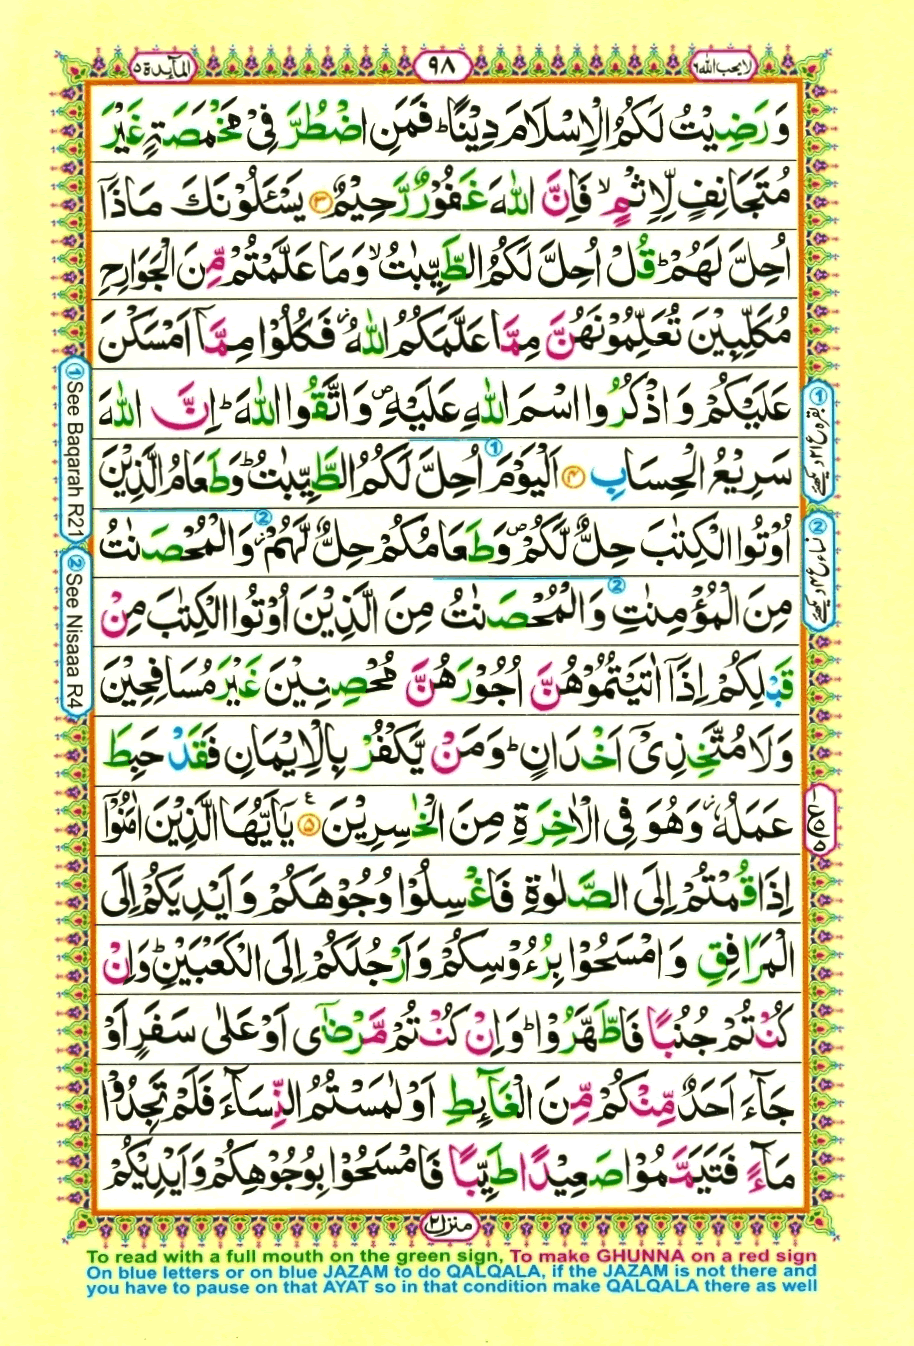 لا يحب الله ٦
٩٨
المآىِٕدة ٥
وَرَضِيْتُ لَكُمُ الْاِسْلَامَ دِيْنًا ؕ فَمَنِ اضْطُرَّ فِيْ مَخْمَصَةٍ غَيْرَ
مُتَجَانِفٍ لِّاِثْمٍ ۙ فَاِنَّ اللّٰهَ غَفُوْرٌ رَّحِيْمٌ ۳ يَسْـَٔلُوْنَكَ مَاذَاۤ
اُحِلَّ لَهُمْ ؕ قُلْ اُحِلَّ لَكُمُ الطَّيِّبٰتُ ۙ وَمَا عَلَّمْتُمْ مِّنَ الْجَوَارِحِ
مُكَلِّبِيْنَ تُعَلِّمُوْنَهُنَّ مِمَّا عَلَّمَكُمُ اللّٰهُ ؗ فَكُلُوْا مِمَّاۤ اَمْسَكْنَ
عَلَيْكُمْ وَاذْكُرُوا اسْمَ اللّٰهِ عَلَيْهِ ۪ وَاتَّقُوا اللّٰهَ ؕ اِنَّ اللّٰهَ
سَرِيْعُ الْحِسَابِ ۴ اَلْيَوْمَ ① اُحِلَّ لَكُمُ الطَّيِّبٰتُ ؕ وَطَعَامُ الَّذِيْنَ
اُوْتُوا الْكِتٰبَ حِلٌّ لَّكُمْ ۪ وَطَعَامُكُمْ حِلٌّ لَّهُمْ ؗ ② وَالْمُحْصَنٰتُ
مِنَ الْمُؤْمِنٰتِ ② وَالْمُحْصَنٰتُ مِنَ الَّذِيْنَ اُوْتُوا الْكِتٰبَ مِنْ
قَبْلِكُمْ اِذَاۤ اٰتَيْتُمُوْهُنَّ اُجُوْرَهُنَّ مُحْصِنِيْنَ غَيْرَ مُسَافِحِيْنَ
وَلَا مُتَّخِذِيْۤ اَخْدَانٍ ؕ وَمَنْ يَّكْفُرْ بِالْاِيْمَانِ فَقَدْ حَبِطَ
عَمَلُهٗ ؗ وَهُوَ فِي الْاٰخِرَةِ مِنَ الْخٰسِرِيْنَ ۵ يٰۤاَيُّهَا الَّذِيْنَ اٰمَنُوْۤا
اِذَا قُمْتُمْ اِلَى الصَّلٰوةِ فَاغْسِلُوْا وُجُوْهَكُمْ وَاَيْدِيَكُمْ اِلَى
الْمَرَافِقِ وَامْسَحُوْا بِرُءُوْسِكُمْ وَاَرْجُلَكُمْ اِلَى الْكَعْبَيْنِ ؕ وَاِنْ
كُنْتُمْ جُنُبًا فَاطَّهَّرُوْا ؕ وَاِنْ كُنْتُمْ مَّرْضٰۤى اَوْ عَلٰى سَفَرٍ اَوْ
جَآءَ اَحَدٌ مِّنْكُمْ مِّنَ الْغَآىِٕطِ اَوْ لٰمَسْتُمُ النِّسَآءَ فَلَمْ تَجِدُوْا
مَآءً فَتَيَمَّمُوْا صَعِيْدًا طَيِّبًا فَامْسَحُوْا بِوُجُوْهِكُمْ وَاَيْدِيْكُمْ
① بقرہ ع ۲۱ دیکھئے
② نساء ع ۴ دیکھئے
① See Baqarah R21
② See Nisaaa R4
منزل ۲
To read with a full mouth on the green sign, To make GHUNNA on a red sign
On blue letters or on blue JAZAM to do QALQALA, if the JAZAM is not there and
you have to pause on that AYAT so in that condition make QALQALA there as well